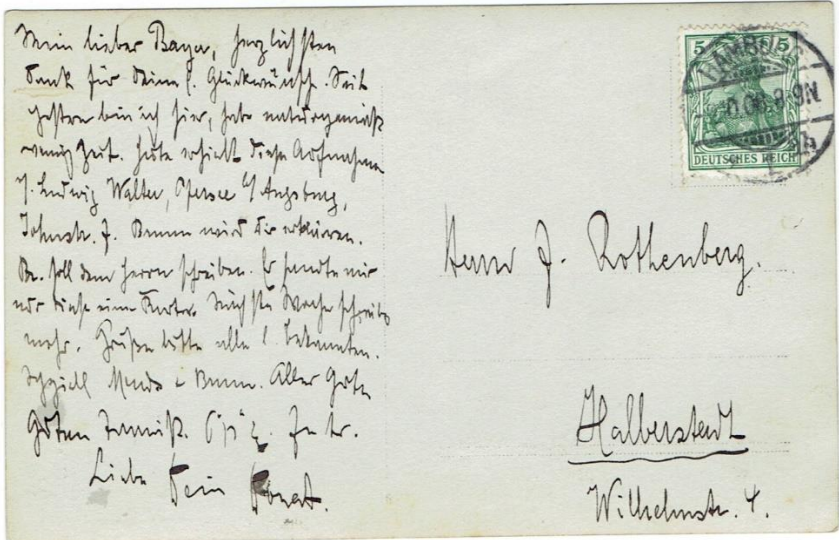 Mein lieber Bayer, herzlichsten
Dank für Deine l. Glückwünsche. Seit
gestern bin ich hier, habe naturgemäß
wenig Zeit. Heute erhielt diese Aufnahme
v. Ludwig Walter, Pfersee b/ Augsburg,
Johnstr. 7. Bumm wird Dir erklären.
Be. soll dem Herrn schreiben. Er sandte mir
nur diese eine Karte. Nächste Woche schreibe
mehr. Grüße bitte alle l. Bekannten.
Speziell & Bumm. Alles Gute
Guten
Liebe Dein
5 5
DEUTSCHES REICH
HAMBURG
8-9N
Herrn J. Rothenberg.
Halberstadt
Wilhelmstr. 4.